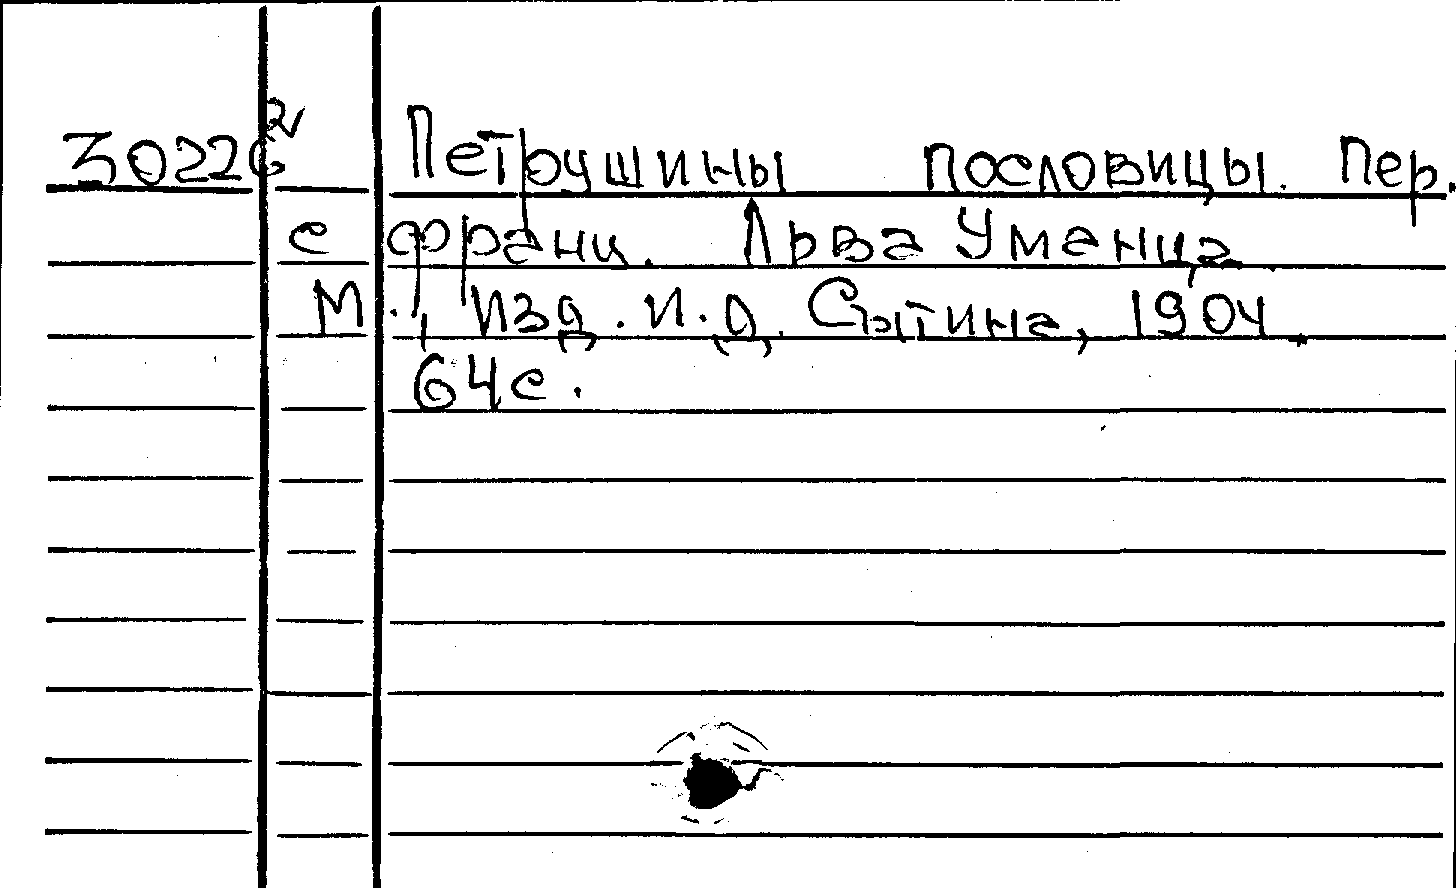 30226² Петрушины пословицы. Пер.
с франц. Льва Уманца.
М., Изд. И.Д. Сытина, 1904.
64с.